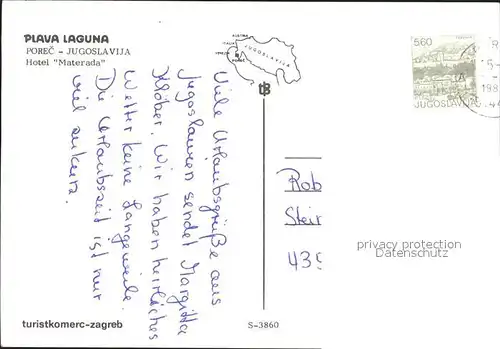 PLAVA LAGUNA
POREČ - JUGOSLAVIJA
Hotel "Materada"
AUSTRIA
ITALIA
VENEZIA
POREČ
JUGOSLAVIJA
Viele Urlaubsgrüße aus
Jugoslawien sendet Margitta
Klöber. Wir haben herrliches
Wetter keine Langeweile.
Die Urlaubszeit ist nur
viel zu kurz.
560
JUGOSLAVIJA
198
Rob
Stein
435
privacy protection
Datenschutz
turistkomerc-zagreb
S-3860